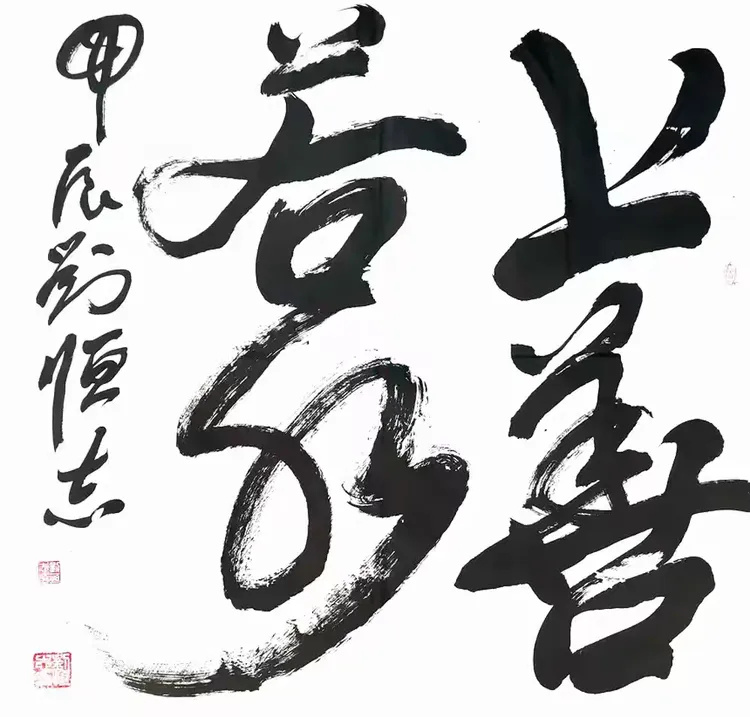 上善
若水
甲辰劉恒志